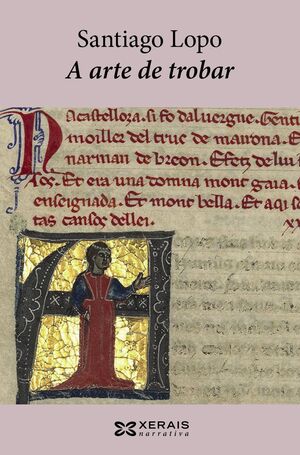 Santiago Lopo
A arte de trobar
Nacastelloza. si fo daluergne. Genti
moiller del truc de mairona. E
narman de breon. E fetz de lui
sos. Et era una domna mout gaia.
enseignada. Et mout bella. Et aqi s
tas cansos dellei.
XERAIS
narrativa